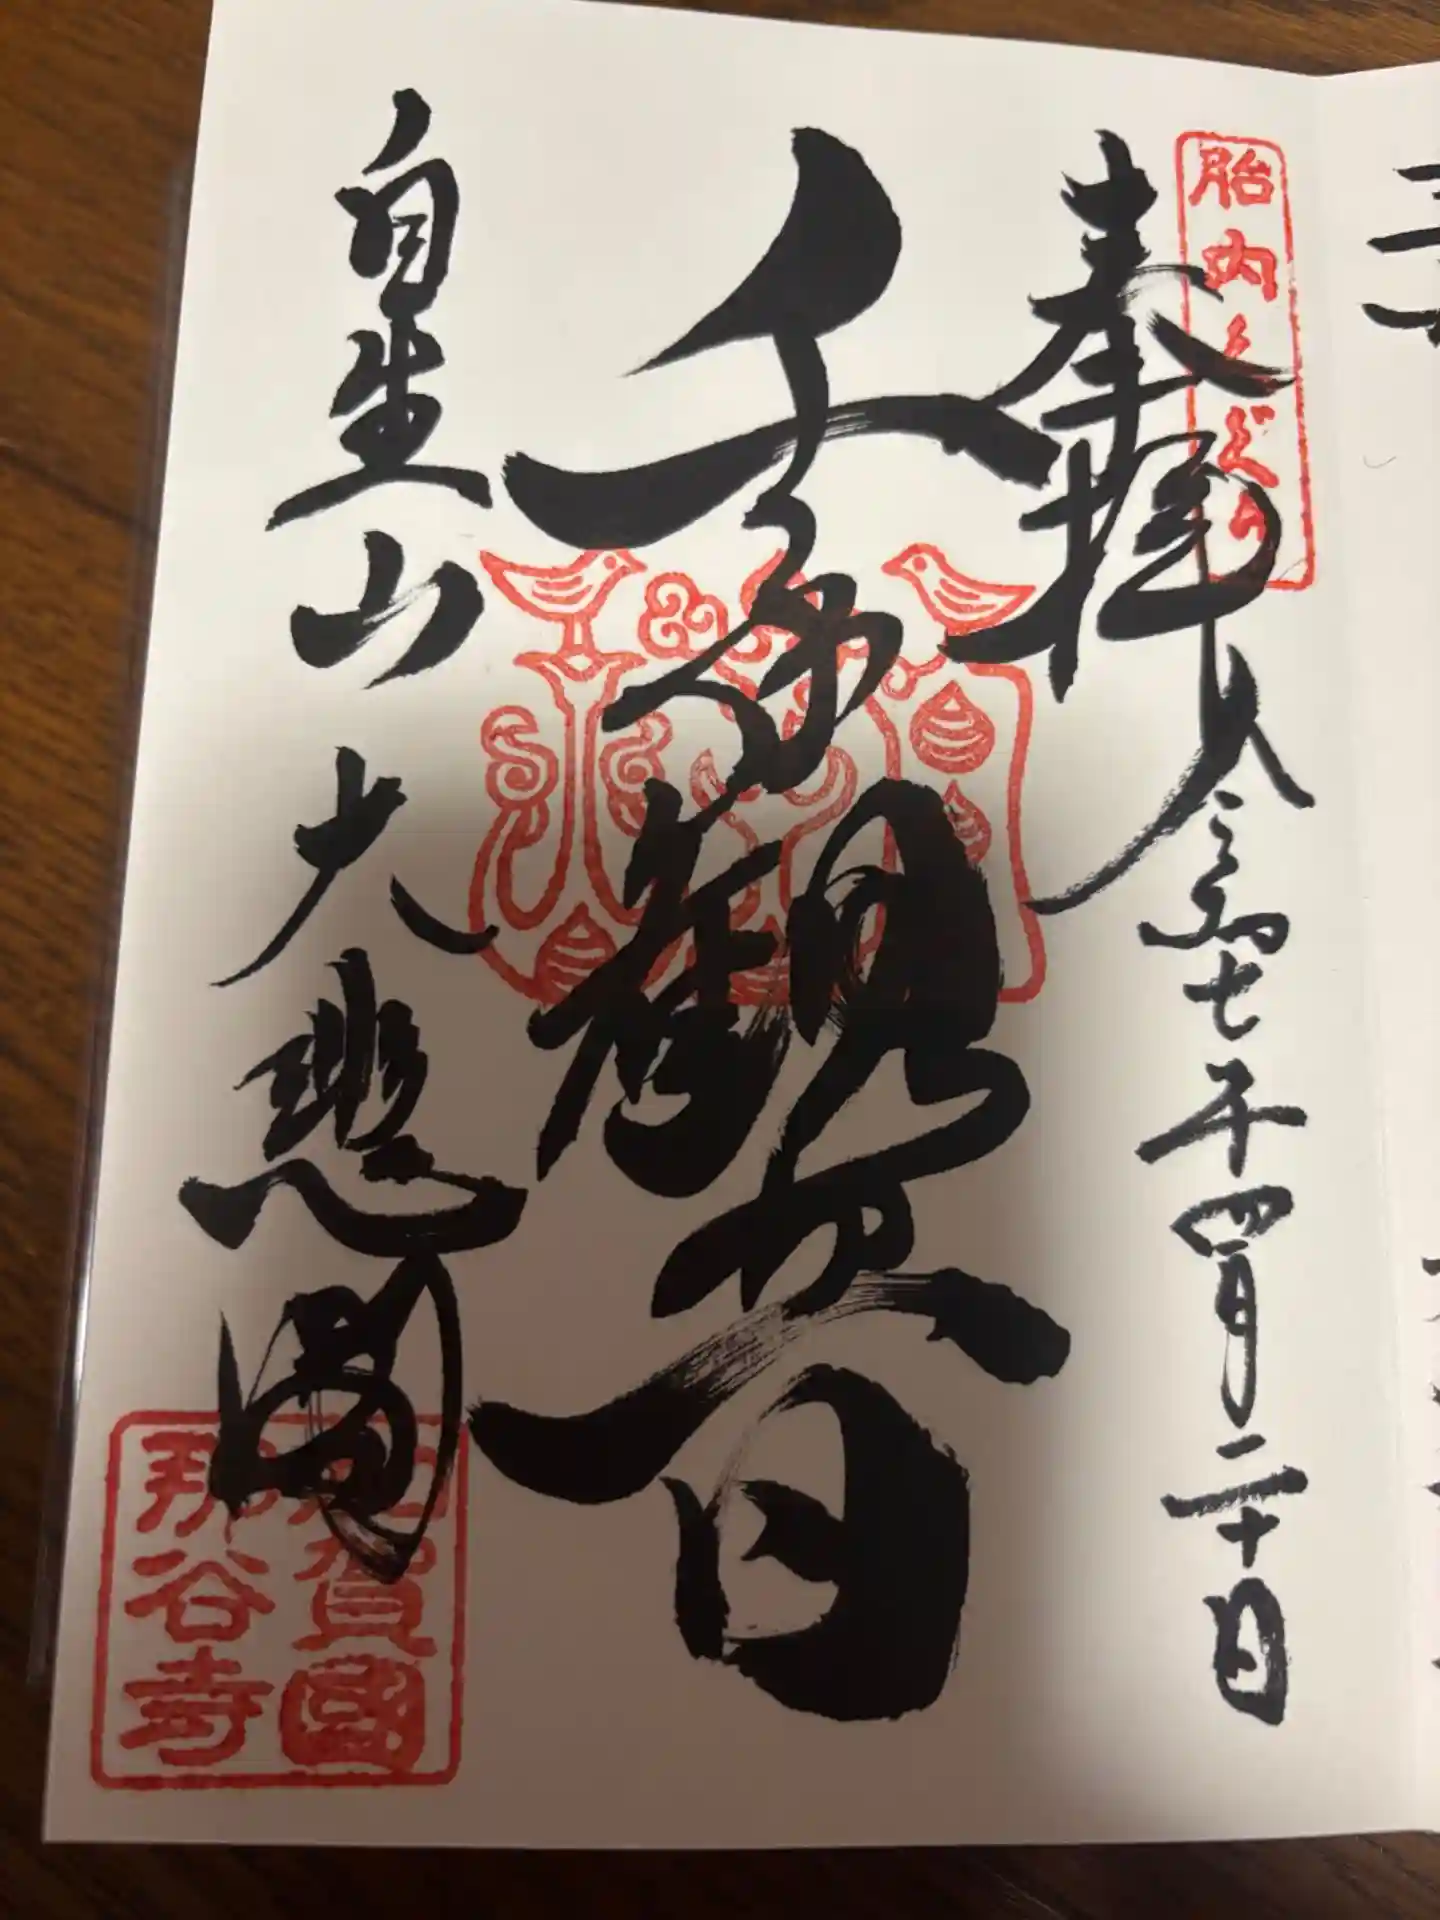 胎内くぐり
奉拝 令和七年四月二十日
千手観音
自生山 大悲閣
加賀國
那谷寺